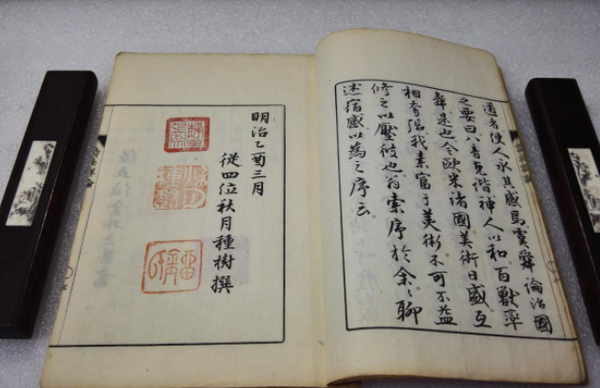 者使人永其感焉虞舜論治國
之要曰八音克諧神人以和百獸率
舞是也今欧米諸國美術日盛互
相夸張我素富于美術不可不益
修之以壓彼也翁索序於余〻聊
述宿感以為之序云
明治乙酉三月
從四位秋月種樹撰